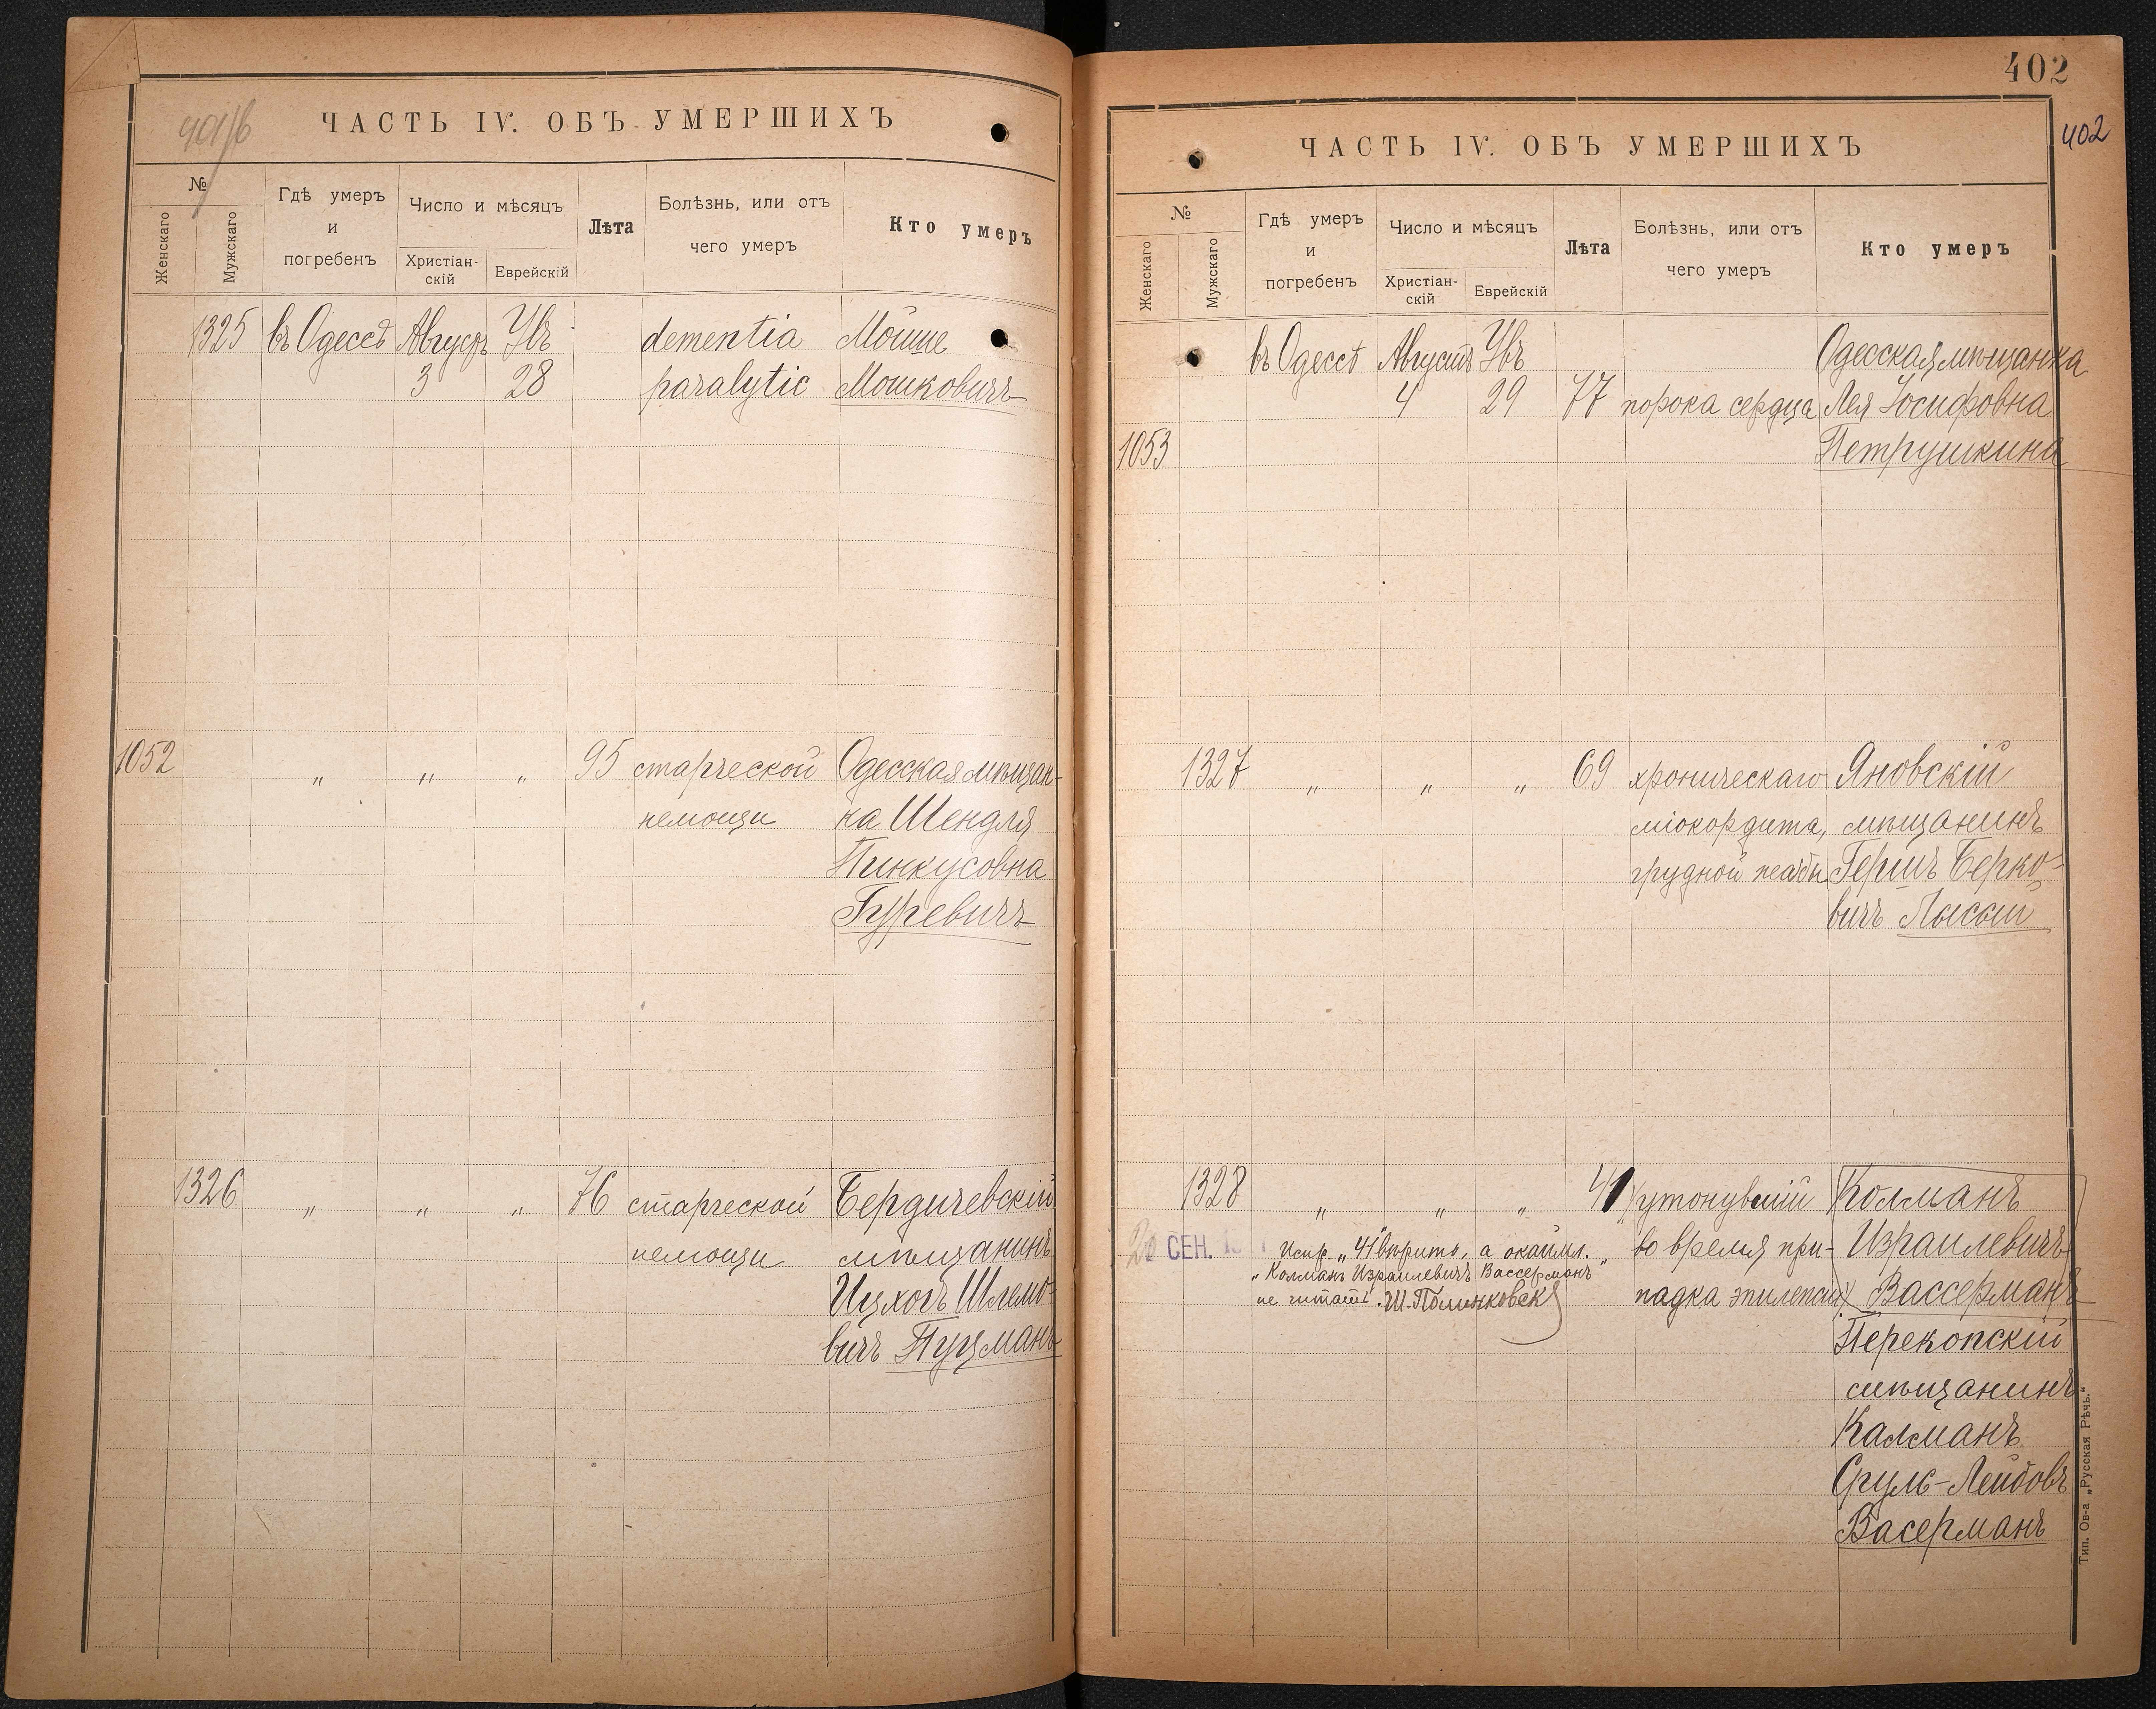 401/б
ЧАСТЬ IV. ОБЪ УМЕРШИХЪ
№
Женскаго
Мужскаго
Гдѣ умеръ
и
погребенъ
Число и мѣсяцъ
Христіан-
скій
Еврейскій
Лѣта
Болѣзнь, или отъ
чего умеръ
Кто умеръ
1325 въ Одессѣ Августъ Увъ dementia Мойше
3 28 paralytic Мошковичъ
1052 " " " 95 старческой Одесская мѣщан-
немощи ка Шендля
Пинкусовна
Гуревичъ
1326 " " " 76 старческой Бердичевскій
немощи мѣщанинъ
Ицхокъ Шлемо-
вичъ Пуцманъ
402
402
ЧАСТЬ IV. ОБЪ УМЕРШИХЪ
№
Женскаго
Мужскаго
Гдѣ умеръ
и
погребенъ
Число и мѣсяцъ
Христіан-
скій
Еврейскій
Лѣта
Болѣзнь, или отъ
чего умеръ
Кто умеръ
въ Одессѣ Августъ Увъ Одесская мѣщанка
4 29 77 порока сердца Лея Іосифовна
1053 Петрушкина
1327 " " " 69 хроническаго Яновскій
міокордита, мѣщанинъ
грудной жабы Гершъ Берко-
вичъ Лысый
1328 " " " 41 утонувшій Колманъ
20 СЕН. Испр. „41" вѣрить, а окаймл. во время при- Израилевичъ
„Колманъ Израилевичъ Вассерманъ"
не читать. Ш. Полинковск падка эпилепсіи Вассерманъ
Перекопскій
мѣщанинъ
Калманъ
Сруль-Лейбовъ
Васерманъ
Тип. Ов-а „Русская Рѣчь."